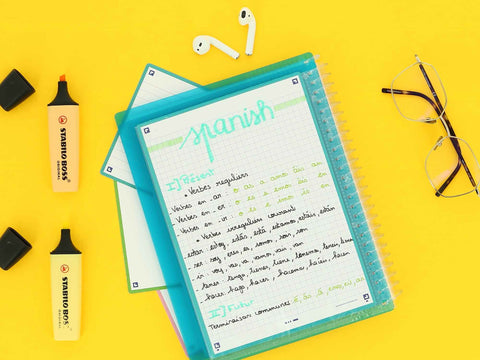 spanish
I) Présent
• Verbes reguliers
Verbes en -ar o as a amo áis an
Verbes en -er o es e emos éis en
Verbes en -ir o es e en
• Verbes irreguliers courant
- estar: estoy, estás, está, estamos, estáis, están
- ser: soy, eres, es, somos, sois, son
- ir: voy, vas, va, vamos, vais, van
- tener: tengo, tienes, tiene,
- hacer: hago, haces,
II) Futur
Terminaison communes:
STABILO BOSS
ORIGINAL
STABILO BOSS
ORIGINAL